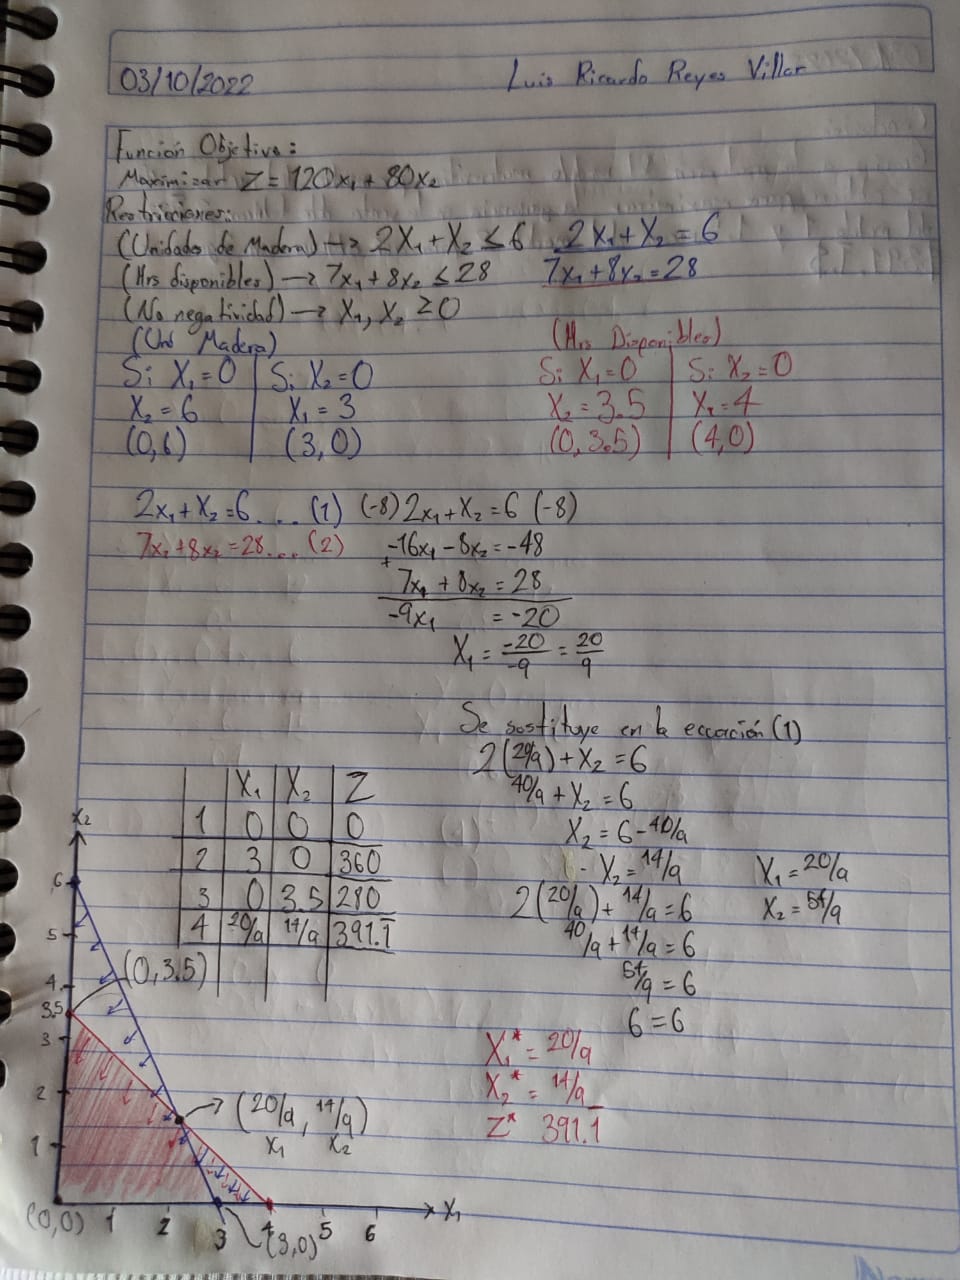 03/10/2022 Luis Ricardo Reyes Villar
Función Objetivo:
Maximizar Z = 120x₁ + 80x₂
Restricciones:
(Unidades de Madera) → 2x₁ + x₂ ≤ 6 2x₁ + x₂ = 6
(Hrs disponibles) → 7x₁ + 8x₂ ≤ 28 7x₁ + 8x₂ = 28
(No negatividad) → x₁, x₂ ≥ 0
(Und Madera) (Hrs Disponibles)
Si x₁ = 0 Si x₂ = 0 Si x₁ = 0 Si x₂ = 0
x₂ = 6 x₁ = 3 x₂ = 3.5 x₁ = 4
(0,6) (3,0) (0,3.5) (4,0)
2x₁ + x₂ = 6 ... (1) (-8) 2x₁ + x₂ = 6 (-8)
7x₁ + 8x₂ = 28 ... (2) -16x₁ - 8x₂ = -48
+ 7x₁ + 8x₂ = 28
-9x₁ = -20
x₁ = -20/-9 = 20/9
Se sostituye en la ecuación (1)
2(20/9) + x₂ = 6
40/9 + x₂ = 6
x₂ = 6 - 40/9
x₂ = 14/9 x₁ = 20/9
2(20/9) + 14/9 = 6 x₂ = 54/9
40/9 + 14/9 = 6
54/9 = 6
6 = 6
x₁* = 20/9
x₂* = 14/9
Z* 391.1̅
x₁ x₂ Z
1 0 0 0
2 3 0 360
3 0 3.5 280
4 20/9 14/9 391.1̅
x₂
6
5
4
3.5
3
2
1
(0,3.5)
(20/9, 14/9)
x₁ x₂
(0,0) 1 2 3 4 5 6 x₁
(3,0)